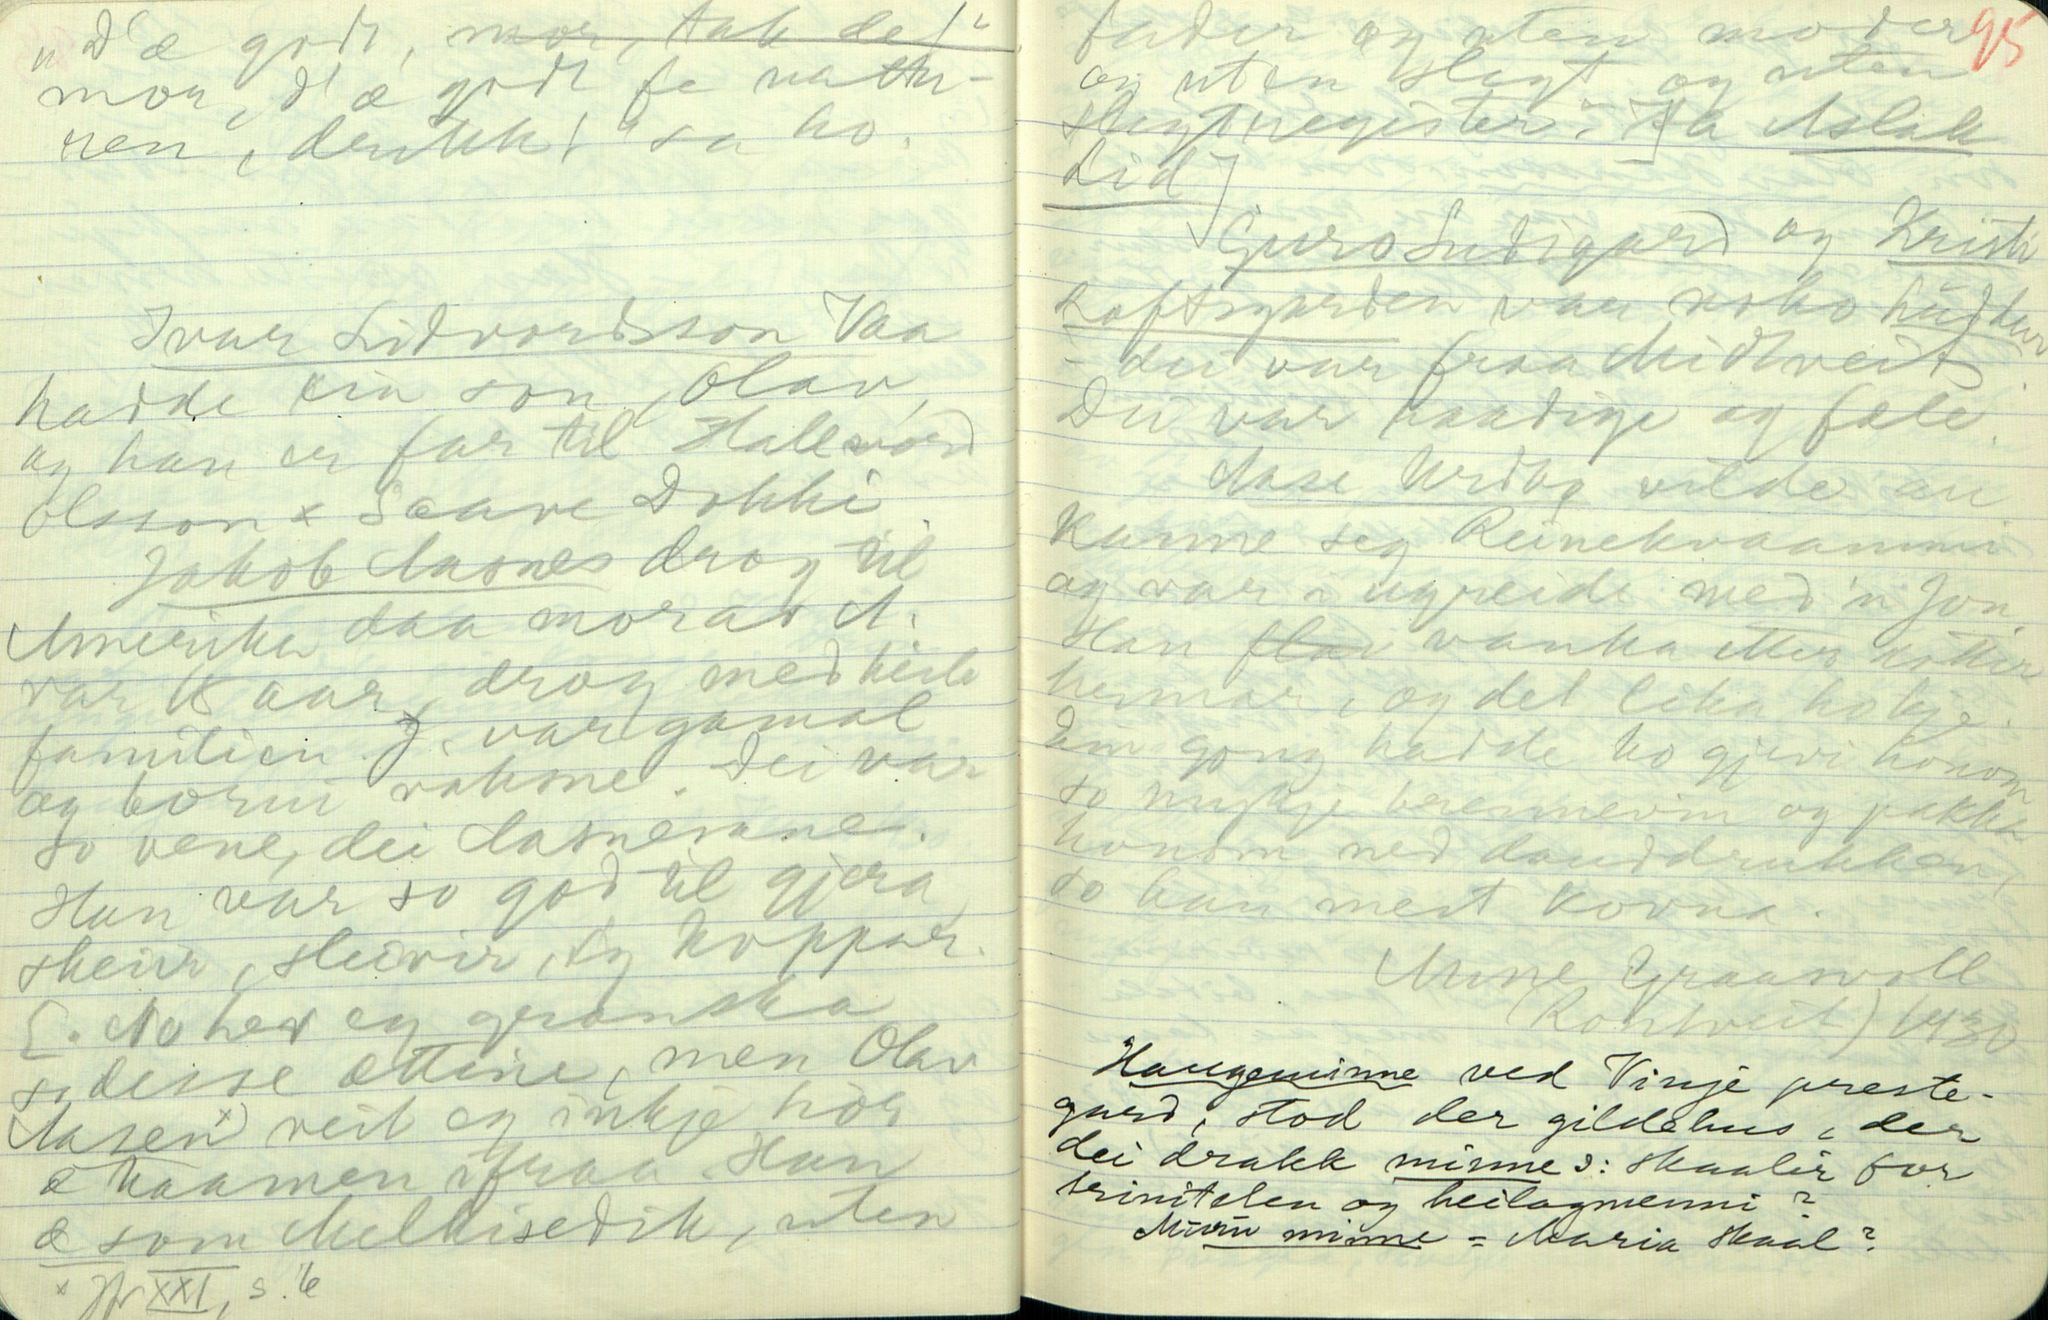 "D'æ godt, mor, tak de!"
mor, d'æ godt fe natu-
ren, drikk!" sa ho.
Ivar Lidvordsson Vaa
hadde ein son, Olav,
og han er far til Hallvord
Olsson x Saave Dokki.
Jakob Aasnes drog til
Amerika daa morar A.
var 15 aar, drog med heile
familien. J. var gamal
og borni vaksne. Dei var
so vene, dei Aasnesane.
Han var so god til gjera
skeier, sleivir, og koppar.
No hev eg granska
so desse ættine, men Olav
Aasen x) veit eg inkje hòr
æ kaamen ifraa. Han
æ som Melkisedik, uten
x Jfr XXI, s. 16
95
fader og uten moder
og uten slegt og uten
slegtregister." [sa Aslak
Lid]
Guro Sudigard og Kristi
Loftsgarden var noko hudkur
- dei var fraa Midtveit.
Dei var haadige og fæle.
Aase Urdbø vilde an
kanne seg Reinekvaammi
og var i ugreide med 'n Jon.
Han flav vanka etter kötter
hermar, og det lika ho kje.
Ein gong hadde ho gjevi honom
so mykje brennevin og pakka
honom ned dauddrukken,
so han mest kovna.
Anne Graavoll
(Rontveit) 1930
Haugeminne ved Vinje preste-
gard, stod der gildehus, der
dei drakk minne ɔ: skaalir for
trinitelen og heilagmenni?
Müvü minne = Maria skaal?